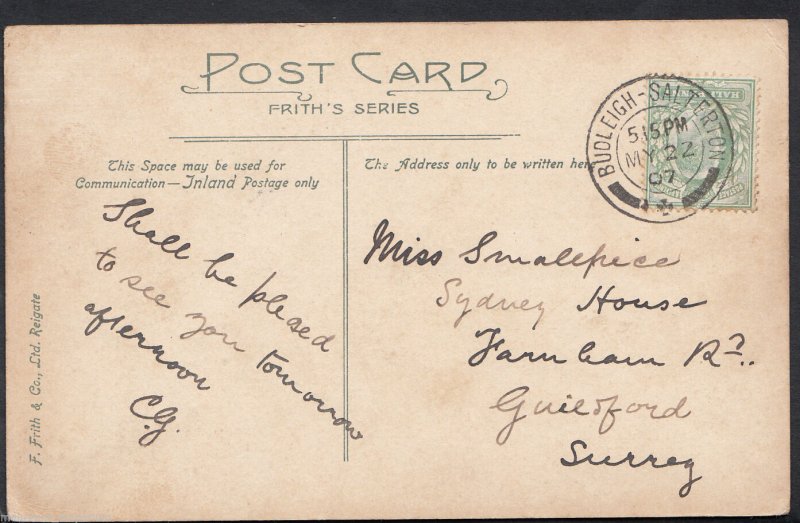 POST CARD
FRITH'S SERIES
This Space may be used for
Communication—Inland Postage only
The Address only to be written here
BUDLEIGH-SALTERTON
5.15 PM
MY 22
07
Shall be pleased
to see you tomorrow
afternoon
C.G.
Miss Smallpiece
Sydney House
Farnham Rd.
Guildford
Surrey
F. Frith & Co., Ltd. Reigate